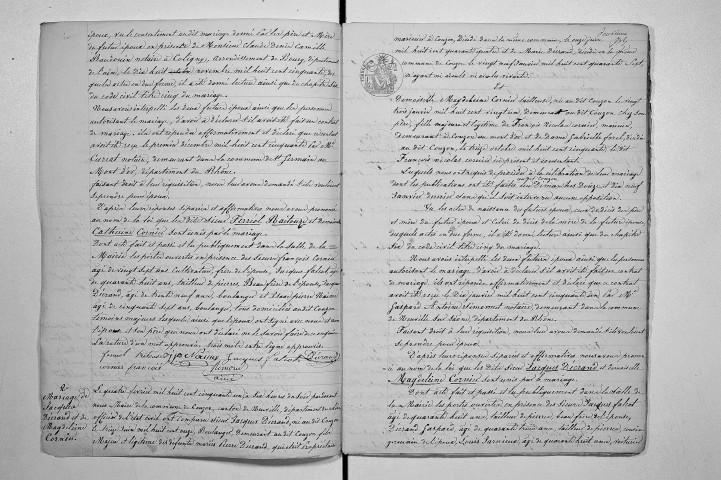 époux, vu le consentement audit mariage donné par les père et mère
du futur époux en présence de Monsieur Claude Denis Camille
notaire à Coligny, arrondissement de Bourg, département
de l'ain, le dix huit novembre mil huit cent cinquante, des
quels actes en due forme, il a été donné lecture ainsi que du chapitre six
du code civil titre cinq du mariage.
Nous avons interpellé les deux futurs époux ainsi que les personnes
autorisant le mariage, d'avoir à déclarer s'il avait été fait un contrat
de mariage, ils ont répondu affirmativement et déclaré que ce contrat
avait été reçu le premier décembre mil huit cent cinquante par Me
notaire, demeurant dans la commune de St Germain au
Mont d'or, département du Rhône.
faisant droit à leur réquisition, nous leur avons demandé s'ils veulent
se prendre pour époux.
D'après leurs réponses séparées et affirmatives nous avons prononcé
au nom de la loi que les dits Sieur Ferréol et demoiselle
Catherine Cornier sont unis par le mariage.
Dont acte fait et passé et lu publiquement dans la salle de la
Mairie les portes ouvertes en présence des Sieurs François Cornier
âgé de vingt sept ans cultivateur, frère de l'épouse, Jacques
âgé de quarante huit ans, tailleur de pierres beau frère de l'épouse, Jacques
Durand, âgé de trente neuf ans, boulanger et Jean Pierre
âgé de cinquante sept ans, boulanger, tous domiciliés audit Couzon
témoins majeurs lesquels ainsi que l'époux ont signé avec nous et non
l'épouse et son père qui nous ont déclaré ne le savoir faire de ce requis
cornier françois Jacques Durand
2
Mariage de
Jacques
Durand et de
Magdeleine
Cornier.
Le quatre février mil huit cent cinquante un à six heures du soir pardevant
nous Maire de la commune de Couzon, canton de Neuville, département du Rhône
officier de l'état civil est comparu Sieur Jacques Durand, né audit Couzon
le treize juin mil huit cent onze, Boulanger, demeurant audit Couzon, fils
Majeur et légitime des défunts mariés Pierre Durand, qui était propriétaire
marinier à Couzon, décédé dans la même commune, le onze juin
mil huit cent quarante quatre et de Marie Durand, décédée en la même
commune de Couzon, le vingt neuf janvier mil huit cent quarante sept
Et
Demoiselle Magdeleine Cornier tailleuse, née audit Couzon le vingt
trois janvier mil huit cent vingt un, demeurant audit Couzon chez son
père, fille majeure et légitime de François Nicolas cornier, marinier,
demeurant à Couzon au mont d'or et de dame Gabrielle, décédée
au dit Couzon, le treize octobre mil huit cent cinquante, le dit
François nicolas cornier ici présent et consentant.
Lesquels nous ont requis de procéder à la célébration de leur mariage
dont les publications ont été faites les dimanches douze et dix neuf
janvier dernier sans qu'il soit intervenu aucune opposition.
Vu les actes de naissance du futurs époux, ceux de décès des père
et mère du futur époux et celui de décès de la mère de la future épouse
desquels actes en due forme, il a été donné lecture ainsi que du chapitre
six du code civil titre cinq du mariage.
Nous avons interpellé les deux futurs époux ainsi que les personnes
autorisant le mariage d'avoir à déclarer s'il avait été fait un contrat
de mariage. ils ont répondu affirmativement et déclaré que ce contrat
avait été reçu le dix janvier mil huit cent cinquante un par Me
Gaspard Antoine notaire, demeurant dans la commune
de Neuville sur Saône, département du Rhône.
Faisant droit de leur réquisition, nous leur avons demandé s'ils veulent
se prendre pour époux.
D'après leurs réponses séparées et affirmatives nous avons prononcé
au nom de la loi que les dits Sieur Jacques Durand et demoiselle
Magdeleine Cornier sont unis par le mariage.
Dont acte fait et passé et lu publiquement dans la salle de
la Mairie les portes ouvertes en présence des Sieurs Jacques
âgé de quarante huit ans, tailleur de pierres, beau frère de l'épouse,
Durand Gaspard, âgé de quarante trois ans, tailleur de pierres, cousin
germain de l'époux, Louis, âgé de quarante huit ans, voiturier